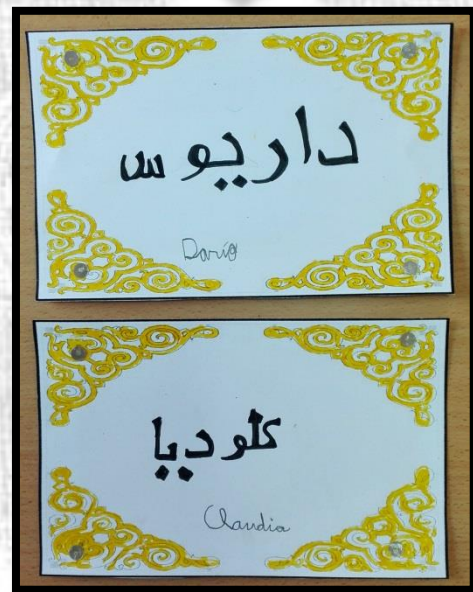 داريوس
Dario
كلوديا
Claudia